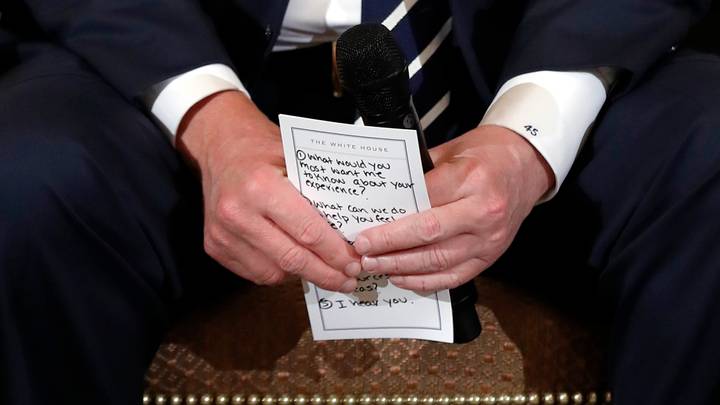 THE WHITE HOUSE
① What would you
most want me
to know about your
experience?
What can we do
help you feel
?
eas?
⑤ I hear you.
45